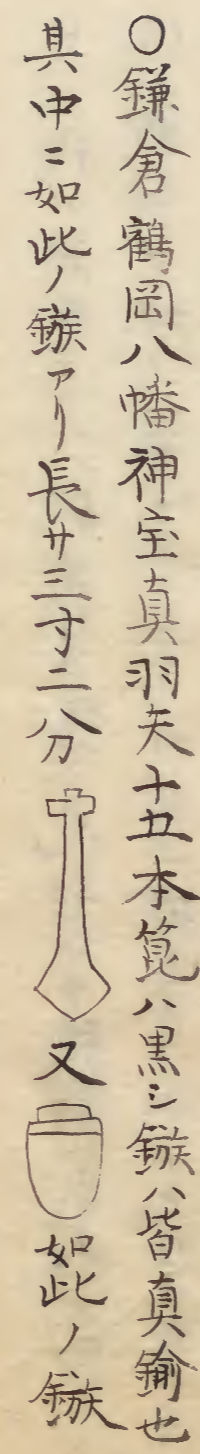 ○鎌倉鶴岡八幡神宝真羽矢十五本箆ハ黒シ鏃ハ皆真鍮也
其中ニ如此ノ鏃アリ長サ三寸二分 又 如此ノ鏃